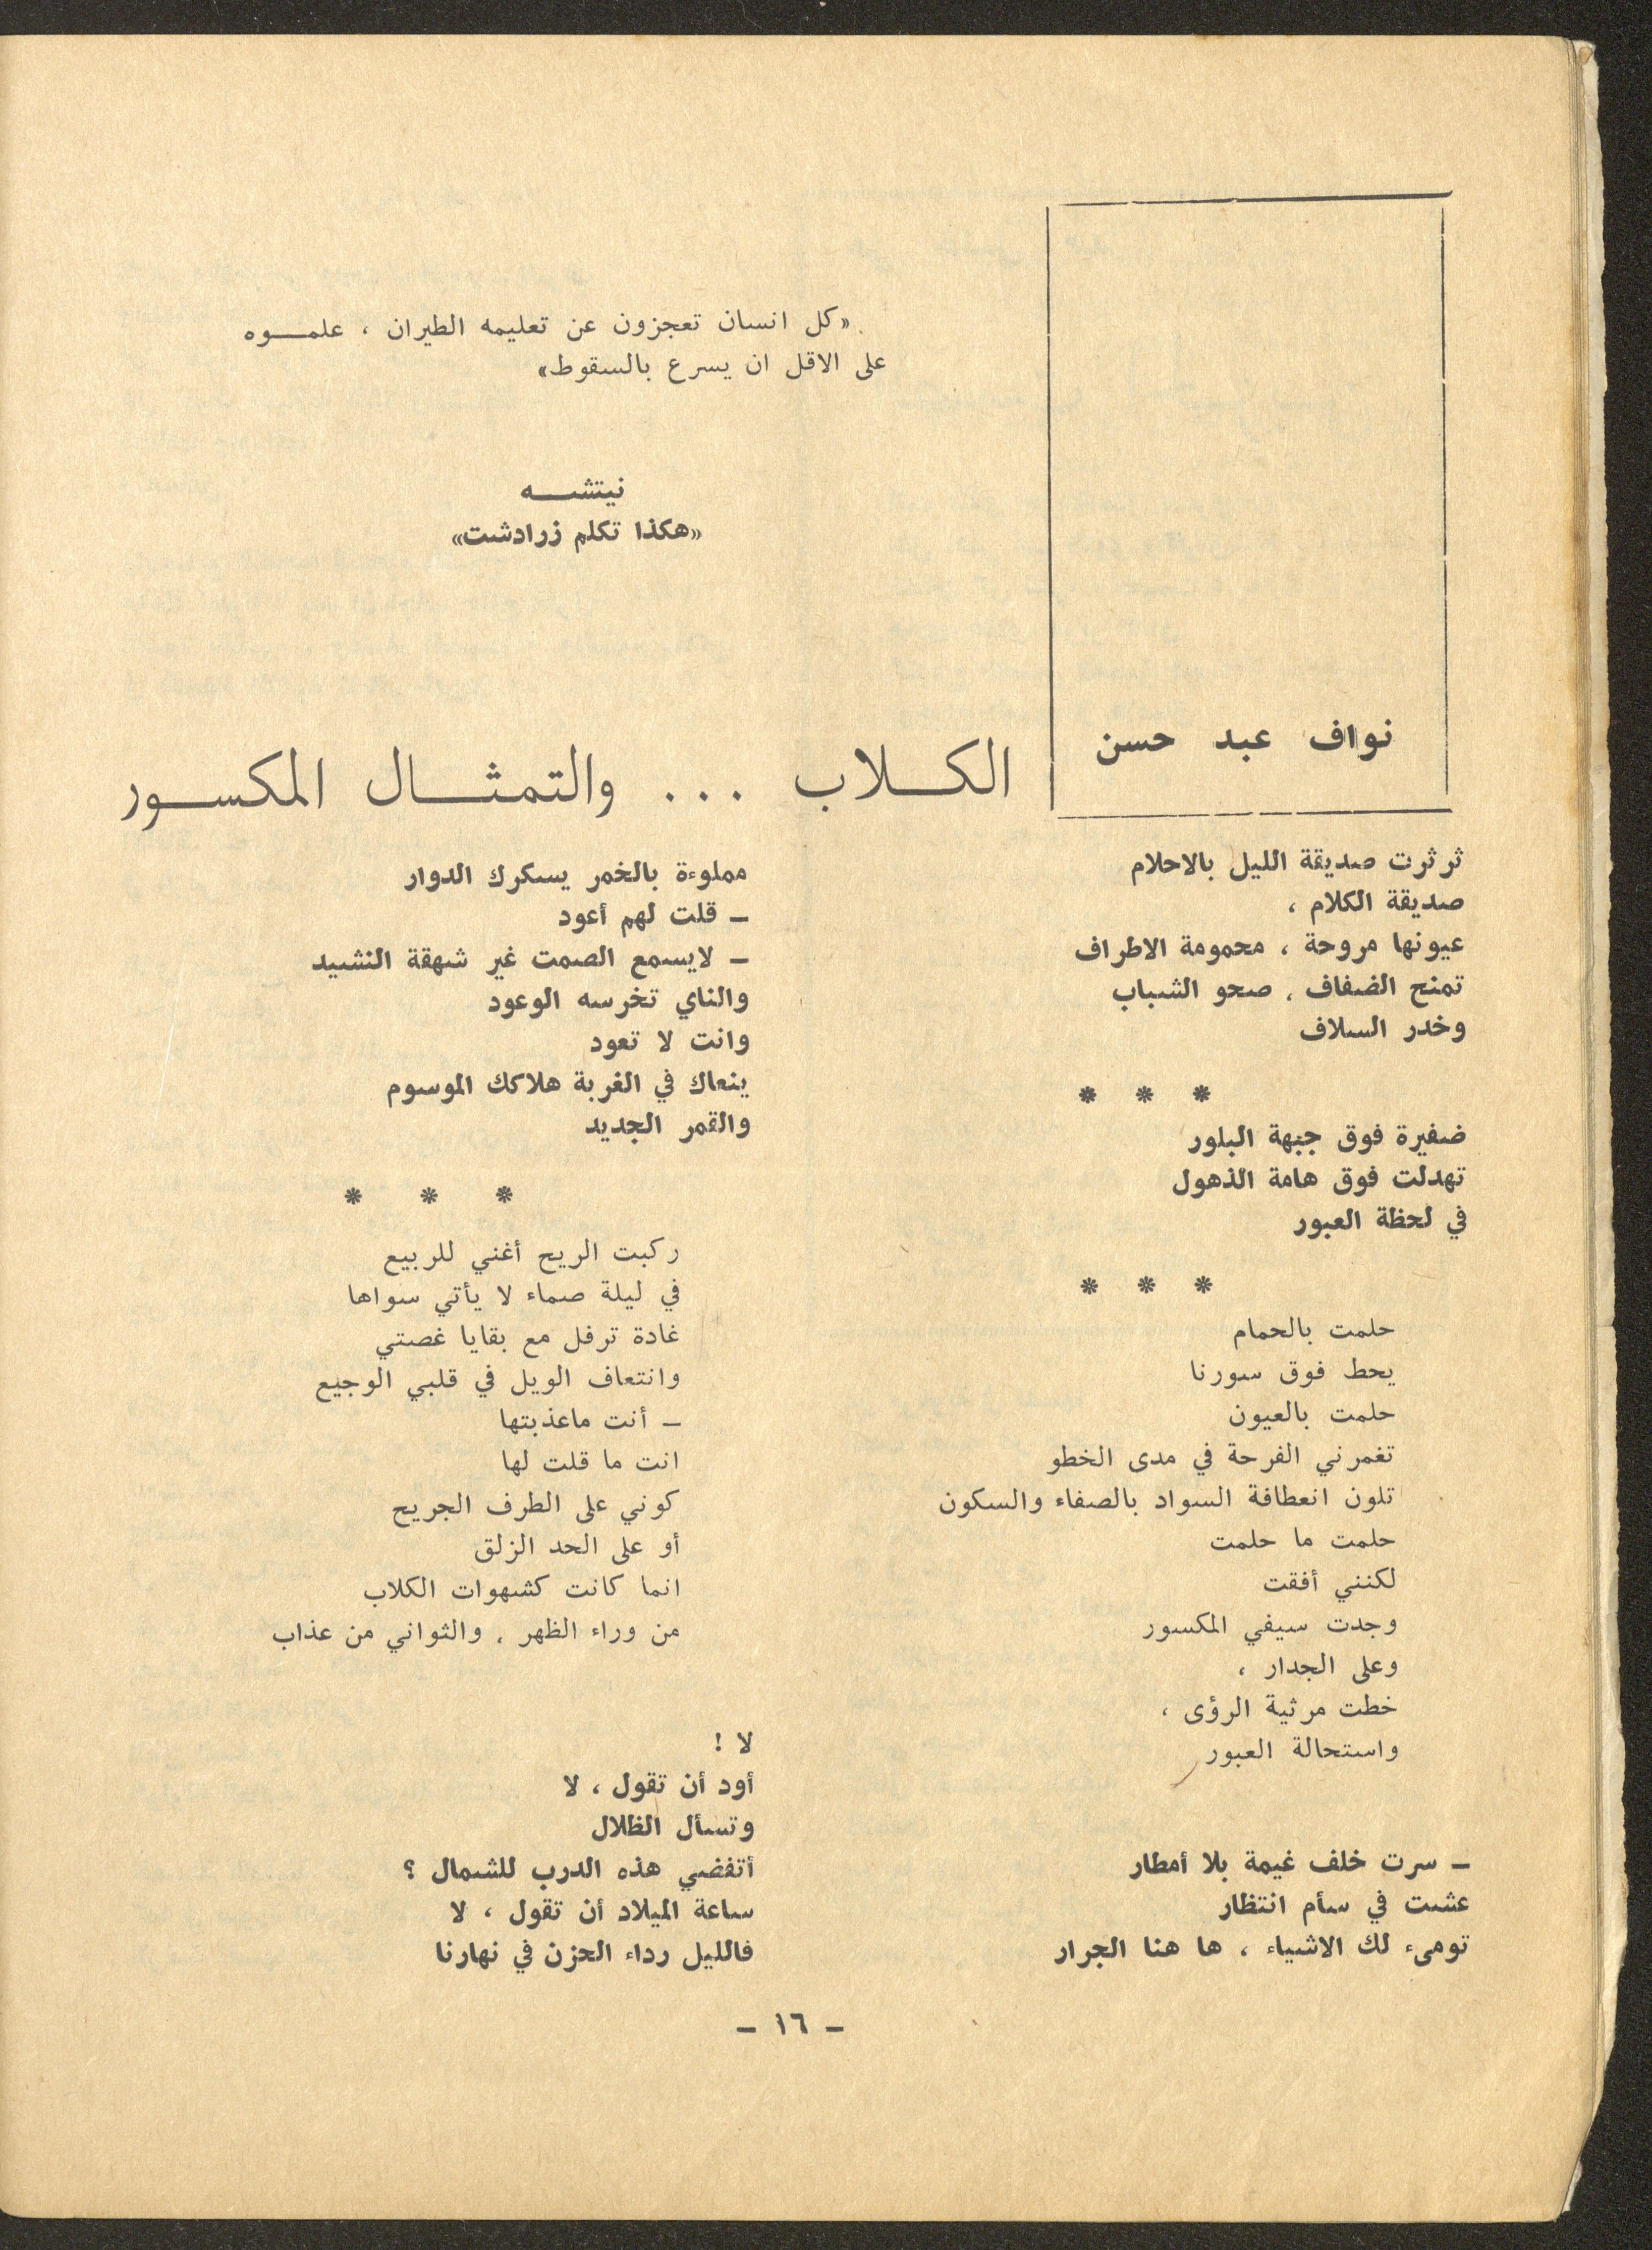 «كل انسان تعجزون عن تعليمه الطيران ، علمـــوه
على الاقل ان يسرع بالسقوط»
نيتشــــه
«هكذا تكلم زرادشت»
نواف عبد حسن
الكـــلاب ... والتمثـــال المكســـور
ثرثرت صديقة الليل بالاحلام
صديقة الكلام ،
عيونها مروحة ، محمومة الاطراف
تمنح الضفاف ، صحو الشباب
وخدر السلاف
* * *
ضفيرة فوق جبهة البلور
تهدلت فوق هامة الذهول
في لحظة العبور
* * *
حلمت بالحمام
يحط فوق سورنا
حلمت بالعيون
تغمرني الفرحة في مدى الخطو
تلون انعطافة السواد بالصفاء والسكون
حلمت ما حلمت
لكنني أفقت
وجدت سيفي المكسور
وعلى الجدار ،
خطت مرثية الرؤى ،
واستحالة العبور
ـ سرت خلف غيمة بلا أمطار
عشت في سأم انتظار
تومىء لك الاشياء ، ها هنا الجرار
مملوءة بالخمر يسكرك الدوار
ـ قلت لهم أعود
ـ لايسمع الصمت غير شهقة النشيد
والناي تخرسه الوعود
وانت لا تعود
ينعاك في الغربة هلاكك الموسوم
والقمر الجديد
* * *
ركبت الريح أغني للربيع
في ليلة صماء لا يأتي سواها
غادة ترفل مع بقايا غصتي
وانتعاف الويل في قلبي الوجيع
ـ أنت ماعذبتها
انت ما قلت لها
كوني على الطرف الجريح
أو على الحد الزلق
انما كانت كشهوات الكلاب
من وراء الظهر ، والثواني من عذاب
لا !
أود أن تقول ، لا
وتسأل الظلال
أتفضي هذه الدرب للشمال ؟
ساعة الميلاد أن تقول ، لا
فالليل رداء الحزن في نهارنا
ـ ١٦ ـ